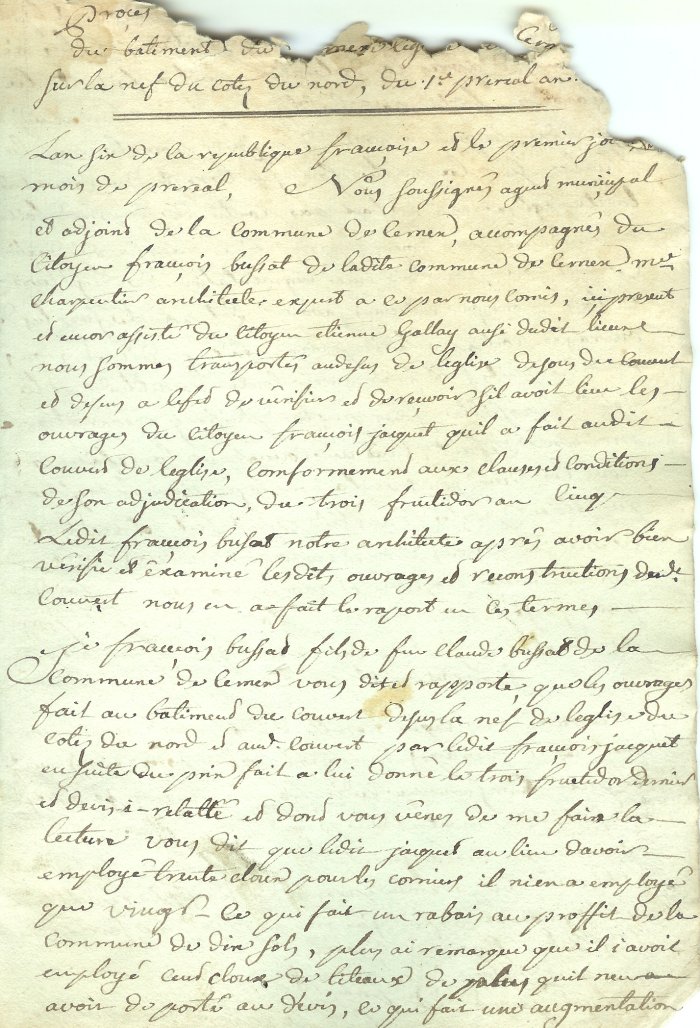 Proces
du batiment du
sur la nef du cotes du nord, du 1er prereal an
Lan six de la republique françoise et le premier jour
mois de prereal, Nous soussignés agent municipal
et adjoind de la Commune de Cernex, accompagnés du
Citoyen françois bussat de ladite commune de Cernex me
charpentier architecte expert a ce par nous comis, ici present
et encor assisté du Citoyen etienne Gallay ausi dudit lieu
nous sommes transportés audesus de leglise desous du Couvert
et desus a lefed de vérifier et de reçevoir sil avoit lieu les
ouvrages du Citoyen françois jacquet quil a fait audit
Couverd de leglise, Comformemend aux clauses et Conditions
de son adjudication, du trois fruitidor an Cinq
Ledit françois busat notre architecte aprés avoir bien
vérifié et éxaminé lesdits ouvrages et reconstructions dudt
Couvert nous en a fait le raport en ces termes
Je françois bussat fils de feu Claude bussat de la
Commune de Cernex vous dit et rapporte que les ouvrages
fait au batimend du Couvert desus la nef de leglise du
Cotes du nord et aud. Couvert par ledit françois jacquet
ensuite du prix fait a lui donné le trois fructidor dernier
et devis i-relatté et dond vous vénes de me faire la
lecture vous dit que ledit jacquet au lieu davoir
employé trente cloux pour les corniers il nien a employé
que vingt - Ce qui fait un rabais au proffit de la
Commune de dix sols, plus ai remarque que il i avoit
employé Cend cloux de liteaux de plus quil neu a
avoit de porté au dévis, ce qui fait une augmentation